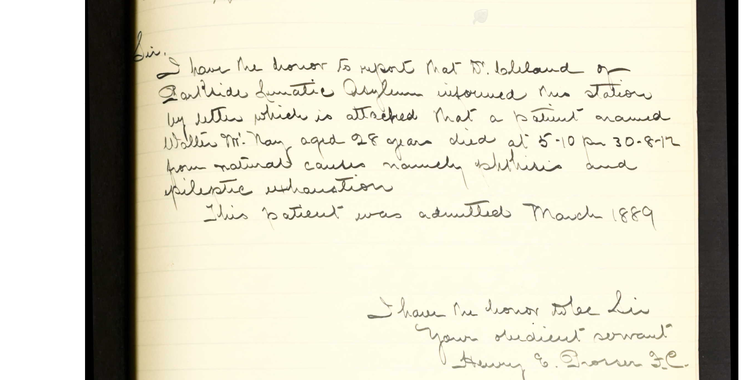 Sir,
I have the honor to report that Dr. Cleland of
Parkside Lunatic Asylum informed this station
by letter which is attached that a patient named
Walter M. aged 28 years died at 5-10 pm 30-8-
from natural causes namely phthisis and
epileptic exhaustion
This patient was admitted March 1889
I have the honor to be Sir
Your obedient servant
Henry E. Prosser F.C.